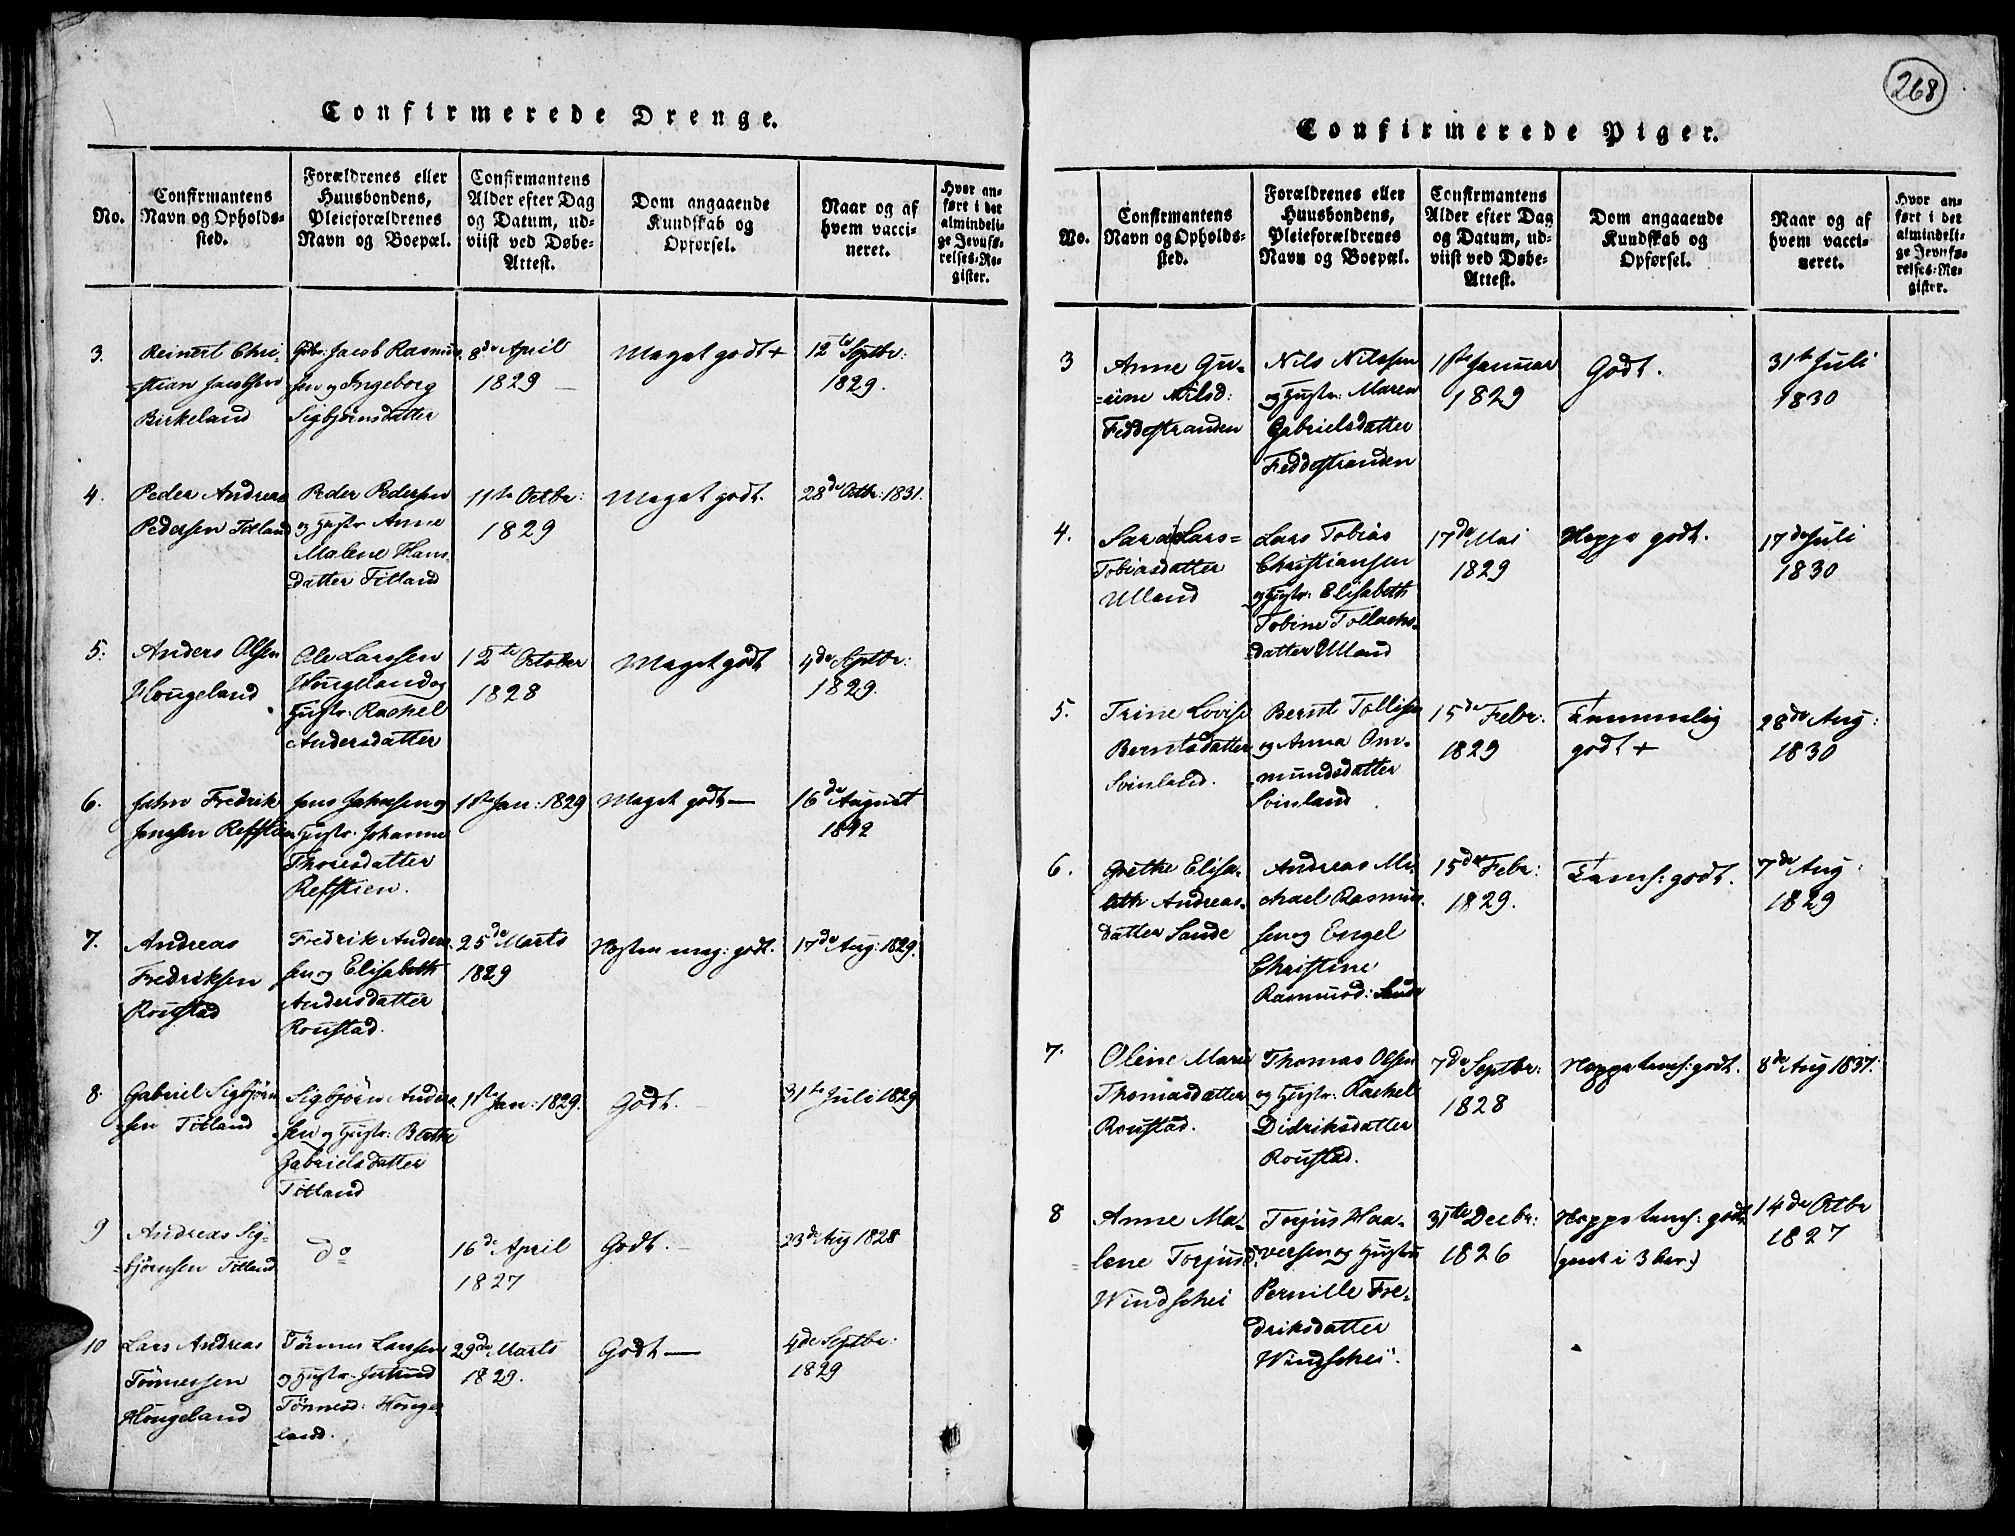 268
Confirmerede Drenge.
No.
Confirmantens
Navn og Opholds-
sted.
Forældrenes eller
Huusbondens,
Pleieforældrenes
Navn og Boepæl.
Confirmantens
Alder efter Dag
og Datum, ud-
viist ved Døbe-
Attest.
Dom angaaende
Kundskab og
Opførsel.
Naar og af
hvem vacci-
neret.
Hvor an-
ført i det
almindeli-
ge Jevnfø-
relses-Re-
gister.
3.
Reinert Chri-
stian Jacobsen
Birkeland
Jacob Rasmus-
sen og Ingeborg
Sigbjørnsdatter
8de April
1829
Meget godt +
12te Septbr:
1829.
4.
Peder Andreas
Pedersen Titland
Peder Pedersen
og Hustr. Anne
Malene Hans-
datter Titland
11te Octbr:
1829
Meget godt.
28de Octbr: 1831.
5.
Anders Olsen
Hougeland
Ole Larssen
Hougeland og
Hustr: Rachel
Andersdatter
12te October
1828
Meget godt
4de Septbr:
1829.
6.
Jahn Fredrik
Jensen Refstien
Jens Jahnsen og
Hustr. Johanne
Thoresdatter
Refstien.
1ste Jan: 1829
Meget godt —
16de August
1842
7.
Andreas
Fredriksen
Roustad
Fredrik Anders-
sen og Elisabeth
Andersdatter
Roustad.
25de Marts
1829
Næsten meg: godt.
17de Aug: 1829.
8.
Gabriel Sigbjørn-
sen Titland
Sigbjørn Anders-
sen og Hustr: Berthe
Gabrielsdatter
Titland
1ste Jan: 1829.
Godt.
31te Juli 1829
9
Andreas Sig-
bjørnsen Titland
do
16de April
1827
Godt. —
23de Aug 1828
10
Lars Andreas
Tönnessen
Hougeland
Tönnes Larssen
og Hustr.
Tönnesd: Houge-
land.
29de Marts
1829.
Godt —
4de Septbr.
1829
Confirmerede Piger.
No.
Confirmantens
Navn og Opholds-
sted.
Forældrenes eller
Huusbondens,
Pleieforældrenes
Navn og Boepæl.
Confirmantens
Alder efter Dag
og Datum, ud-
viist ved Døbe-
Attest.
Dom angaaende
Kundskab og
Opførsel.
Naar og af
hvem vacci-
neret.
Hvor an-
ført i det
almindeli-
ge Jevnfø-
relses-Re-
gister.
3
Anne Gu-
rine Nilsd:
Feddestranden
Nils Nilssen
og Hustr: Maren
Gabrielsdatter
Feddestranden
1ste Januar
1829
Godt.
31te Juli
1830
4.
Sara Lars-
Tobiasdatter
Ulland
Lars Tobias
Christiansen
og Hustr: Elisabeth
Tobine Tollachs-
datter Ulland
17de Mai
1829
Neppe godt.
17de Juli
1830
5.
Trine Lovise
Berntsdatter
Svinland.
Bernt Tollisen
og Anna Om-
mundsdatter
Svinland
15de Febr:
1829
Temmelig
godt +
28de Aug:
1830
6.
Grethe Elisa-
beth Andreas-
datter Sande
Andreas Mi-
chael Rasmus-
sen og Engel
Christine
Rasmusd: Sande
15de Febr:
1829.
Tems: godt.
7de Aug:
1829
7.
Oline Marie
Thomasdatter
Roustad.
Thomas Olsen
og Hustr: Rachel
Didriksdatter
Roustad.
7de Septbr:
1828
Neppe tems: godt.
8de Aug 1837.
8
Anne Ma-
lene Torjusd.
Windschei
Torjus Haa-
versen og Hustru
Pernille Fre-
driksdatter
Windschei.
31te Decbr:
1826
Neppe tems: godt
14de Octbr
1827